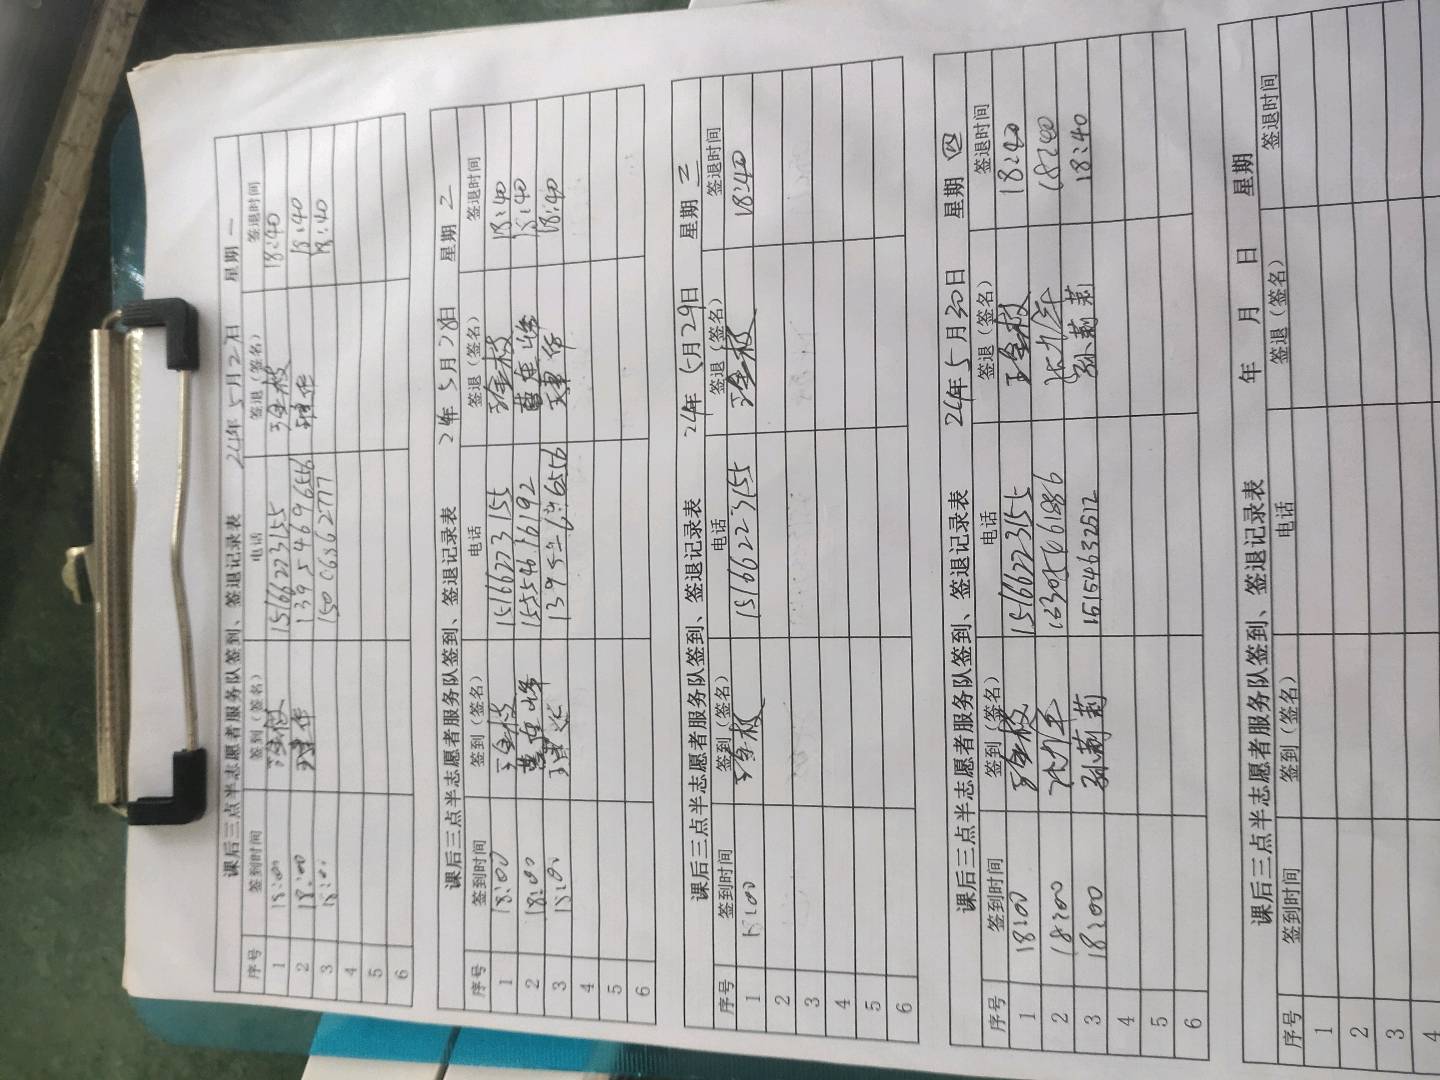 课后三点半志愿者服务队签到、签退记录表 24年5月27日 星期一
序号 签到时间 签到（签名） 电话 签退（签名） 签退时间
1 18:00 15166273155 18:40
2 18:00 13954696556 18:40
3 18:00 15006862777 18:40
4
5
6
课后三点半志愿者服务队签到、签退记录表 24年5月28日 星期二
序号 签到时间 签到（签名） 电话 签退（签名） 签退时间
1 18:00 王金枝 15166273155 王金枝 18:40
2 18:00 15554616192 18:40
3 18:00 18:40
4
5
6
课后三点半志愿者服务队签到、签退记录表 24年5月29日 星期三
序号 签到时间 签到（签名） 电话 签退（签名） 签退时间
1 18:00 王金枝 15166223155 王金枝 18:40
2
3
4
5
6
课后三点半志愿者服务队签到、签退记录表 24年5月30日 星期四
序号 签到时间 签到（签名） 电话 签退（签名） 签退时间
1 18:00 王金枝 15166273155 王金枝 18:40
2 18:00 18:40
3 18:00 孙莉莉 15154632512 孙莉莉 18:40
4
5
6
课后三点半志愿者服务队签到、签退记录表 年 月 日 星期
序号 签到时间 签到（签名） 电话 签退（签名） 签退时间
1
2
3
4